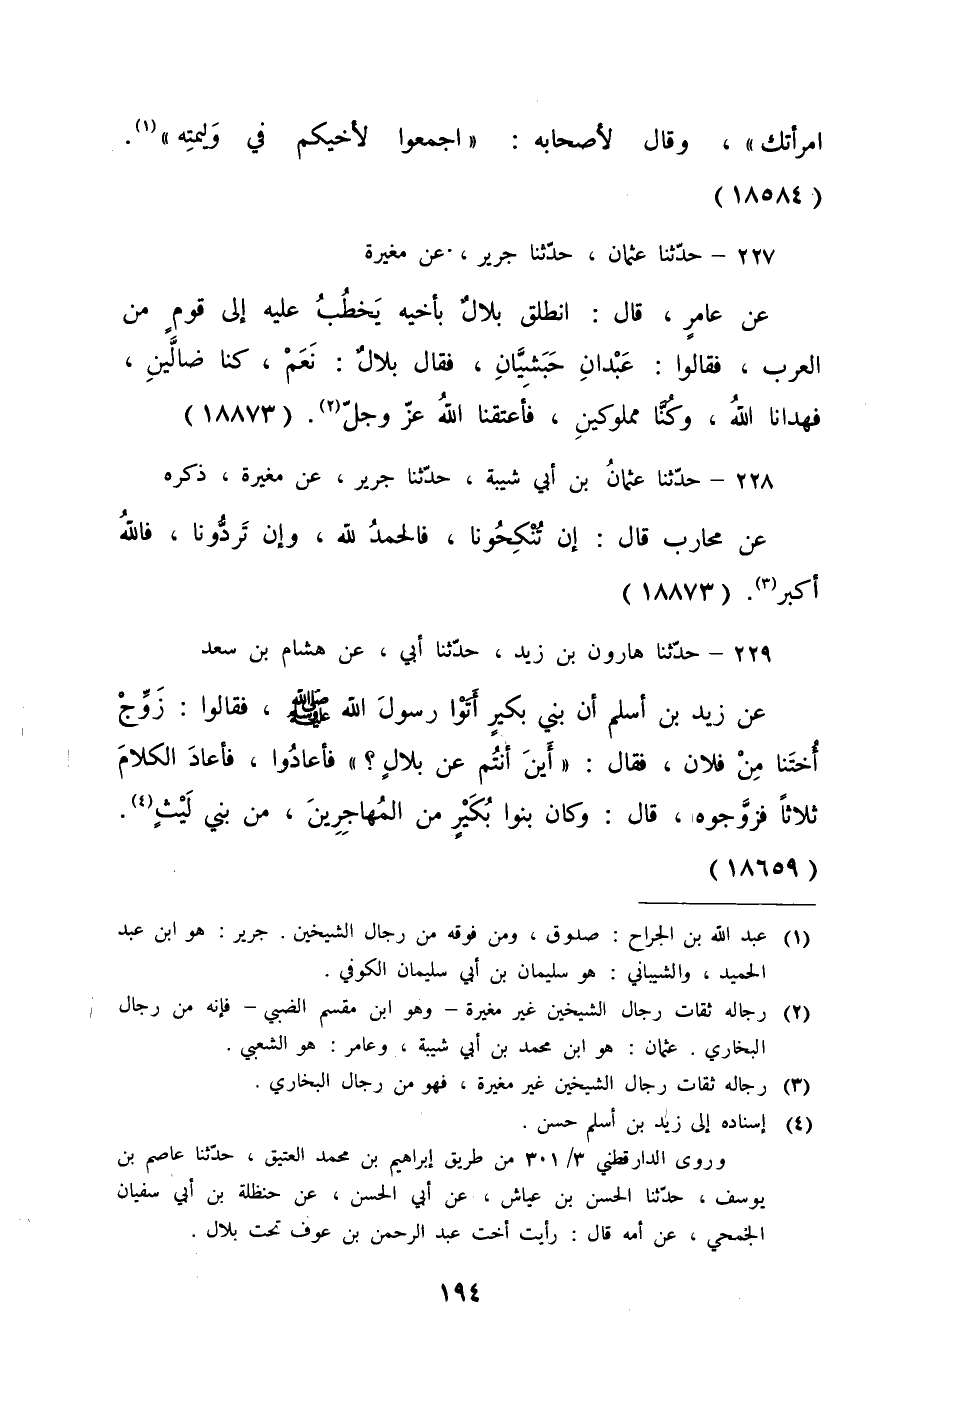 امرأتك» ، وقال لأصحابه : « اجمعوا لأخيكم في وَليمتِه »(١).
(١٨٥٨٤)
٢٢٧ – حدّثنا عثمان ، حدّثنا جرير ، عن مغيرة
عن عامرٍ ، قال : انطلق بلالٌ بأخيه يَخطُبُ عليه إلى قومٍ من
العرب ، فقالوا : عَبْدانِ حَبَشِيَّانِ ، فقال بلالٌ : نَعَمْ ، كنا ضالَّينِ ،
فهدانا اللهُ ، وكُنَّا مملوكينِ ، فأعتقنا اللهُ عزّ وجلّ(٢). (١٨٨٧٣)
٢٢٨ – حدّثنا عثمانُ بن أبي شيبة ، حدّثنا جرير ، عن مغيرة ، ذكره
عن محارب قال : إن تُنْكِحُونا ، فالحمدُ لله ، وإن تَردُّونا ، فاللهُ
أكبر(٣). (١٨٨٧٣)
٢٢٩ – حدّثنا هارون بن زيد ، حدّثنا أبي ، عن هشام بن سعد
عن زيد بن أسلم أن بني بكيرٍ أَتَوْا رسولَ الله ﷺ ، فقالوا : زَوِّجْ
أُختَنا مِنْ فلان ، فقال : « أَينَ أَنتُم عن بلالٍ ؟» فأعادُوا ، فأعادَ الكلامَ
ثلاثاً فزوَّجوه ، قال : وكان بنوا بُكَيْرٍ من المُهاجِرِينَ ، من بني لَيْثٍ(٤).
(١٨٦٥٩)
(١) عبد الله بن الجراح : صدوق ، ومن فوقه من رجال الشيخين . جرير : هو ابن عبد
الحميد ، والشيباني : هو سليمان بن أبي سليمان الكوفي .
(٢) رجاله ثقات رجال الشيخين غير مغيرة – وهو ابن مقسم الضبي – فإنه من رجال
البخاري . عثمان : هو ابن محمد بن أبي شيبة ، وعامر : هو الشعبي .
(٣) رجاله ثقات رجال الشيخين غير مغيرة ، فهو من رجال البخاري .
(٤) إسناده إلى زيد بن أسلم حسن .
وروى الدارقطني ٣٠١/٣ من طريق إبراهيم بن محمد العتيق ، حدّثنا عاصم بن
يوسف ، حدّثنا الحسن بن عياش ، عن أبي الحسن ، عن حنظلة بن أبي سفيان
الجمحي ، عن أمه قال : رأيت أخت عبد الرحمن بن عوف تحت بلال .
١٩٤